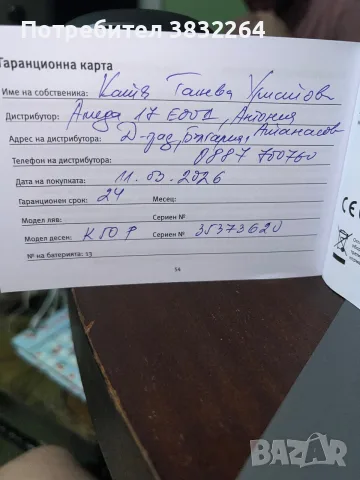 Потребител 3832264
Гаранционна карта
Име на собственика: Катя Танева
Дистрибутор: Амеда 17 ЕООД, Антония
Адрес на дистрибутора: Д-град, България, Атанасов
Телефон на дистрибутора: 0887 700760
Дата на покупката: 11.03.2026
Гаранционен срок: 24 Месец:
Модел ляв: Сериен №
Модел десен: К50 Р Сериен № 35373620
№ на батерията: 13
54
CE
BAZAR